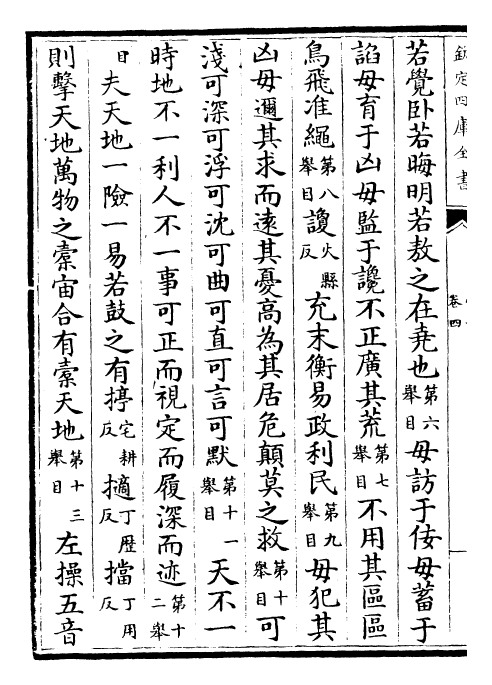 欽定四庫全書
卷四
若覺卧若晦明若敖之在堯也第六舉目毋訪于佞毋蓄于
諂毋育于凶毋監于讒不正廣其荒第七舉目不用其區區
鳥飛准繩第八舉目讂火縣反充末衡易政利民第九舉目毋犯其
凶毋邇其求而遠其憂高為其居危顛莫之救第十舉目可
淺可深可浮可沈可曲可直可言可默第十一舉目天不一
時地不一利人不一事可正而視定而履深而迹第十二舉
目夫天地一險一易若鼓之有揨宅耕反擿丁歴反擋丁用反
則擊天地萬物之橐宙合有橐天地第十三舉目左操五音